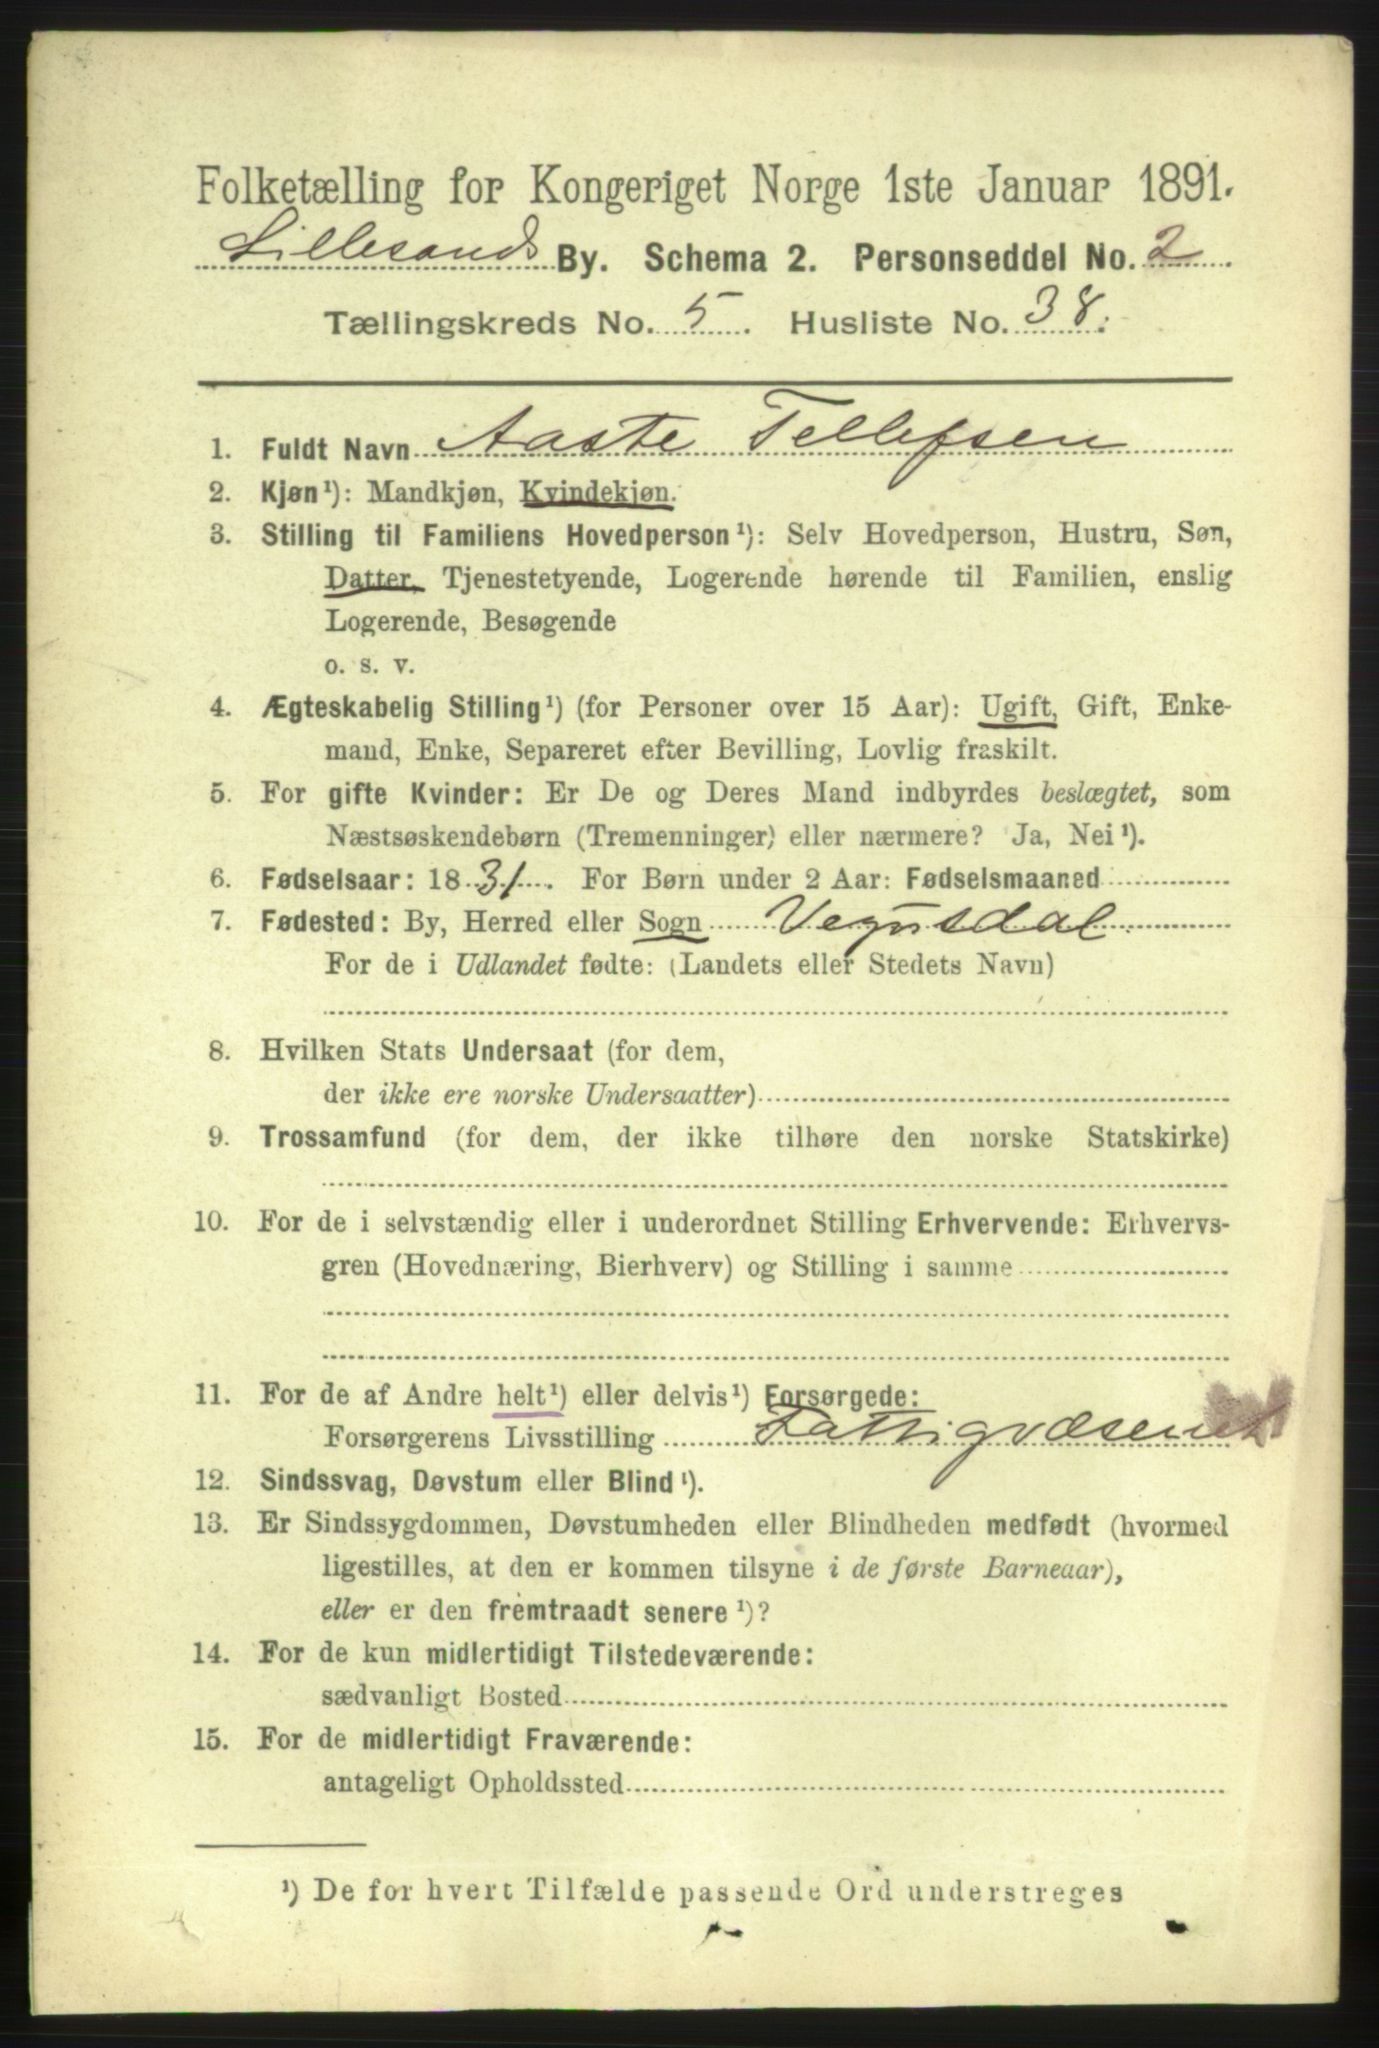 Folketælling for Kongeriget Norge 1ste Januar 1891.
Lillesands By. Schema 2. Personseddel No. 2
Tællingskreds No. 5. Husliste No. 38.
1. Fuldt Navn Aaste Tellefsen
2. Kjøn¹): Mandkjøn, Kvindekjøn.
3. Stilling til Familiens Hovedperson¹): Selv Hovedperson, Hustru, Søn,
Datter, Tjenestetyende, Logerende hørende til Familien, enslig
Logerende, Besøgende
o. s. v.
4. Ægteskabelig Stilling¹) (for Personer over 15 Aar): Ugift, Gift, Enke-
mand, Enke, Separeret efter Bevilling, Lovlig fraskilt.
5. For gifte Kvinder: Er De og Deres Mand indbyrdes beslægtet, som
Næstsøskendebørn (Tremenninger) eller nærmere? Ja, Nei¹).
6. Fødselsaar: 1831. For Børn under 2 Aar: Fødselsmaaned
7. Fødested: By, Herred eller Sogn Vegusdal
For de i Udlandet fødte: (Landets eller Stedets Navn)
8. Hvilken Stats Undersaat (for dem,
der ikke ere norske Undersaatter)
9. Trossamfund (for dem, der ikke tilhøre den norske Statskirke)
10. For de i selvstændig eller i underordnet Stilling Erhvervende: Erhvervs-
gren (Hovednæring, Bierhverv) og Stilling i samme
11. For de af Andre helt¹) eller delvis¹) Forsørgede:
Forsørgerens Livsstilling Fattigvæsenet
12. Sindssvag, Døvstum eller Blind¹).
13. Er Sindssygdommen, Døvstumheden eller Blindheden medfødt (hvormed
ligestilles, at den er kommen tilsyne i de første Barneaar),
eller er den fremtraadt senere¹)?
14. For de kun midlertidigt Tilstedeværende:
sædvanligt Bosted
15. For de midlertidigt Fraværende:
antageligt Opholdssted
¹) De for hvert Tilfælde passende Ord understreges